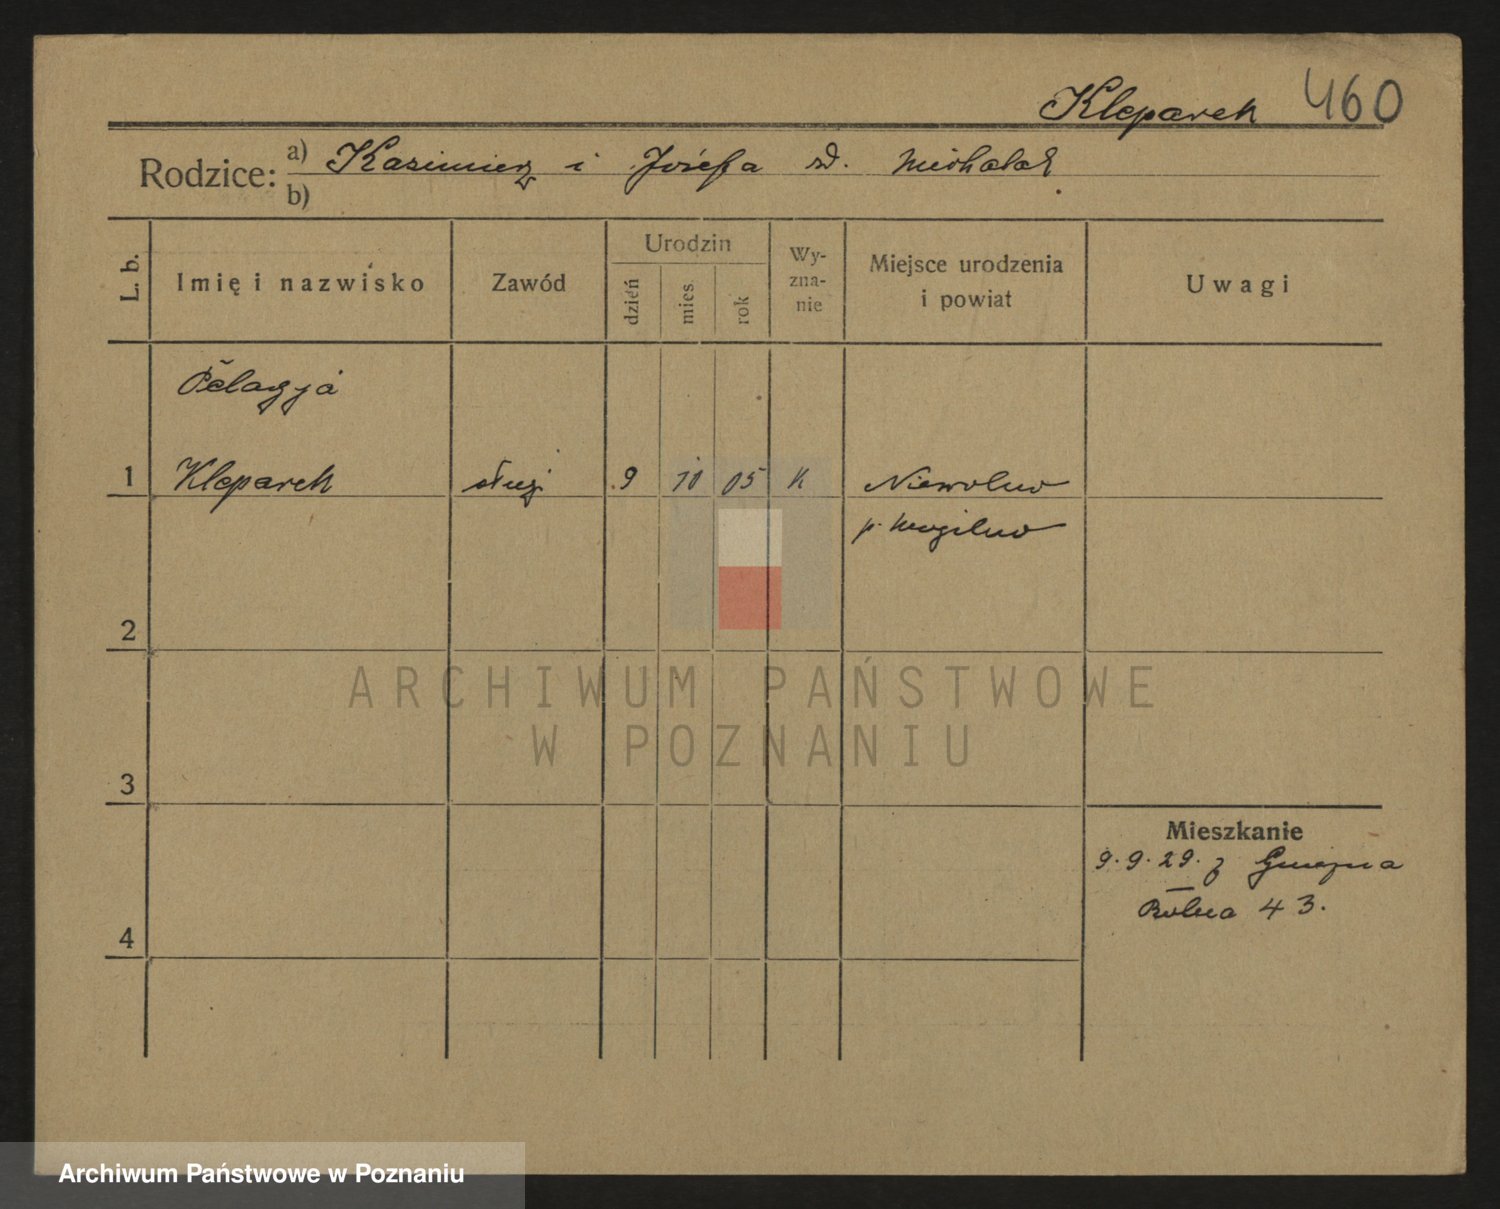 Kleparek 460
Rodzice: a) Kazimierz i Józefa zd. Michalak
b)
L. b. Imię i nazwisko Zawód Urodzin dzień mies. rok Wy- zna- nie Miejsce urodzenia i powiat Uwagi
Pelagja
1 Kleparek służ. 9 10 05 k Niewolno
p. Mogilno
2
ARCHIWUM PAŃSTWOWE
W POZNANIU
3
Mieszkanie
9.9.29. z Gniezna
Rolna 43.
4
Archiwum Państwowe w Poznaniu